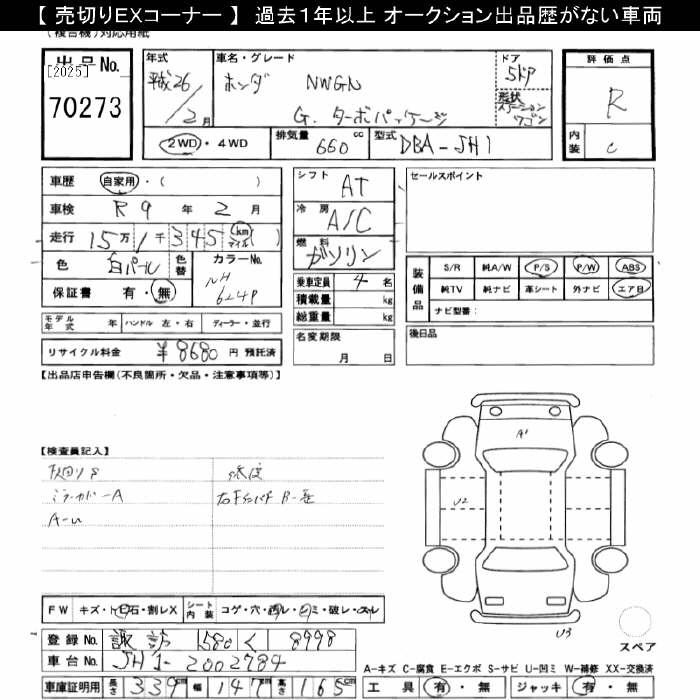 【 売切りEXコーナー 】 過去１年以上 オークション出品歴がない車両
(複合機)対応用紙
出品No.
[2025]
70273
年式 車名・グレード ドア 評価点
平成26 ホンダ NWGN 5ドア R
/2月 G. ターボパッケージ 形状 ステーションワゴン
2WD・4WD 排気量 660 cc 型式 DBA-JH1 内装 C
車歴 自家用・( ) シフト AT セールスポイント
車検 R9年 2月 冷房 A/C
走行 15万 1千 345 (km マイル) 燃料 ガソリン
色 白パール 色替 カラーNo. NH 624P
保証書 有・無
乗車定員 4名
積載量 kg
総重量 kg
装備品 S/R 純A/W P/S P/W ABS
純TV 純ナビ 革シート 外ナビ エアB
ナビ型番:
モデル年式 年 ハンドル 左・右 ディーラー・並行
名変期限 月 日
後日品
リサイクル料金 ¥8680 円 預託済
【出品店申告欄(不良箇所・欠品・注意事項等)】
【検査員記入】
ミラーカバーA
A-U
A1
U2
U3
FW キズ・ト石・割レX シート内装 コゲ・穴・レ・シミ・破レ・スレ
スペア
登録No. 諏訪 580 く 8998
車台No. JH1-2002784
A-キズ C-腐食 E-エクボ S-サビ U-凹ミ W-補修 XX-交換済
車庫証明用 長さ 339cm 幅 147cm 高さ 165cm 工具 有・無 ジャッキ 有・無